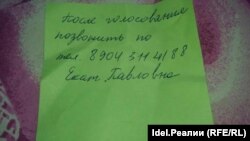 После голосования
позвонить по
тел 8904 511 41 88
Екат Павловна
Idel.Реалии (RFE/RL)